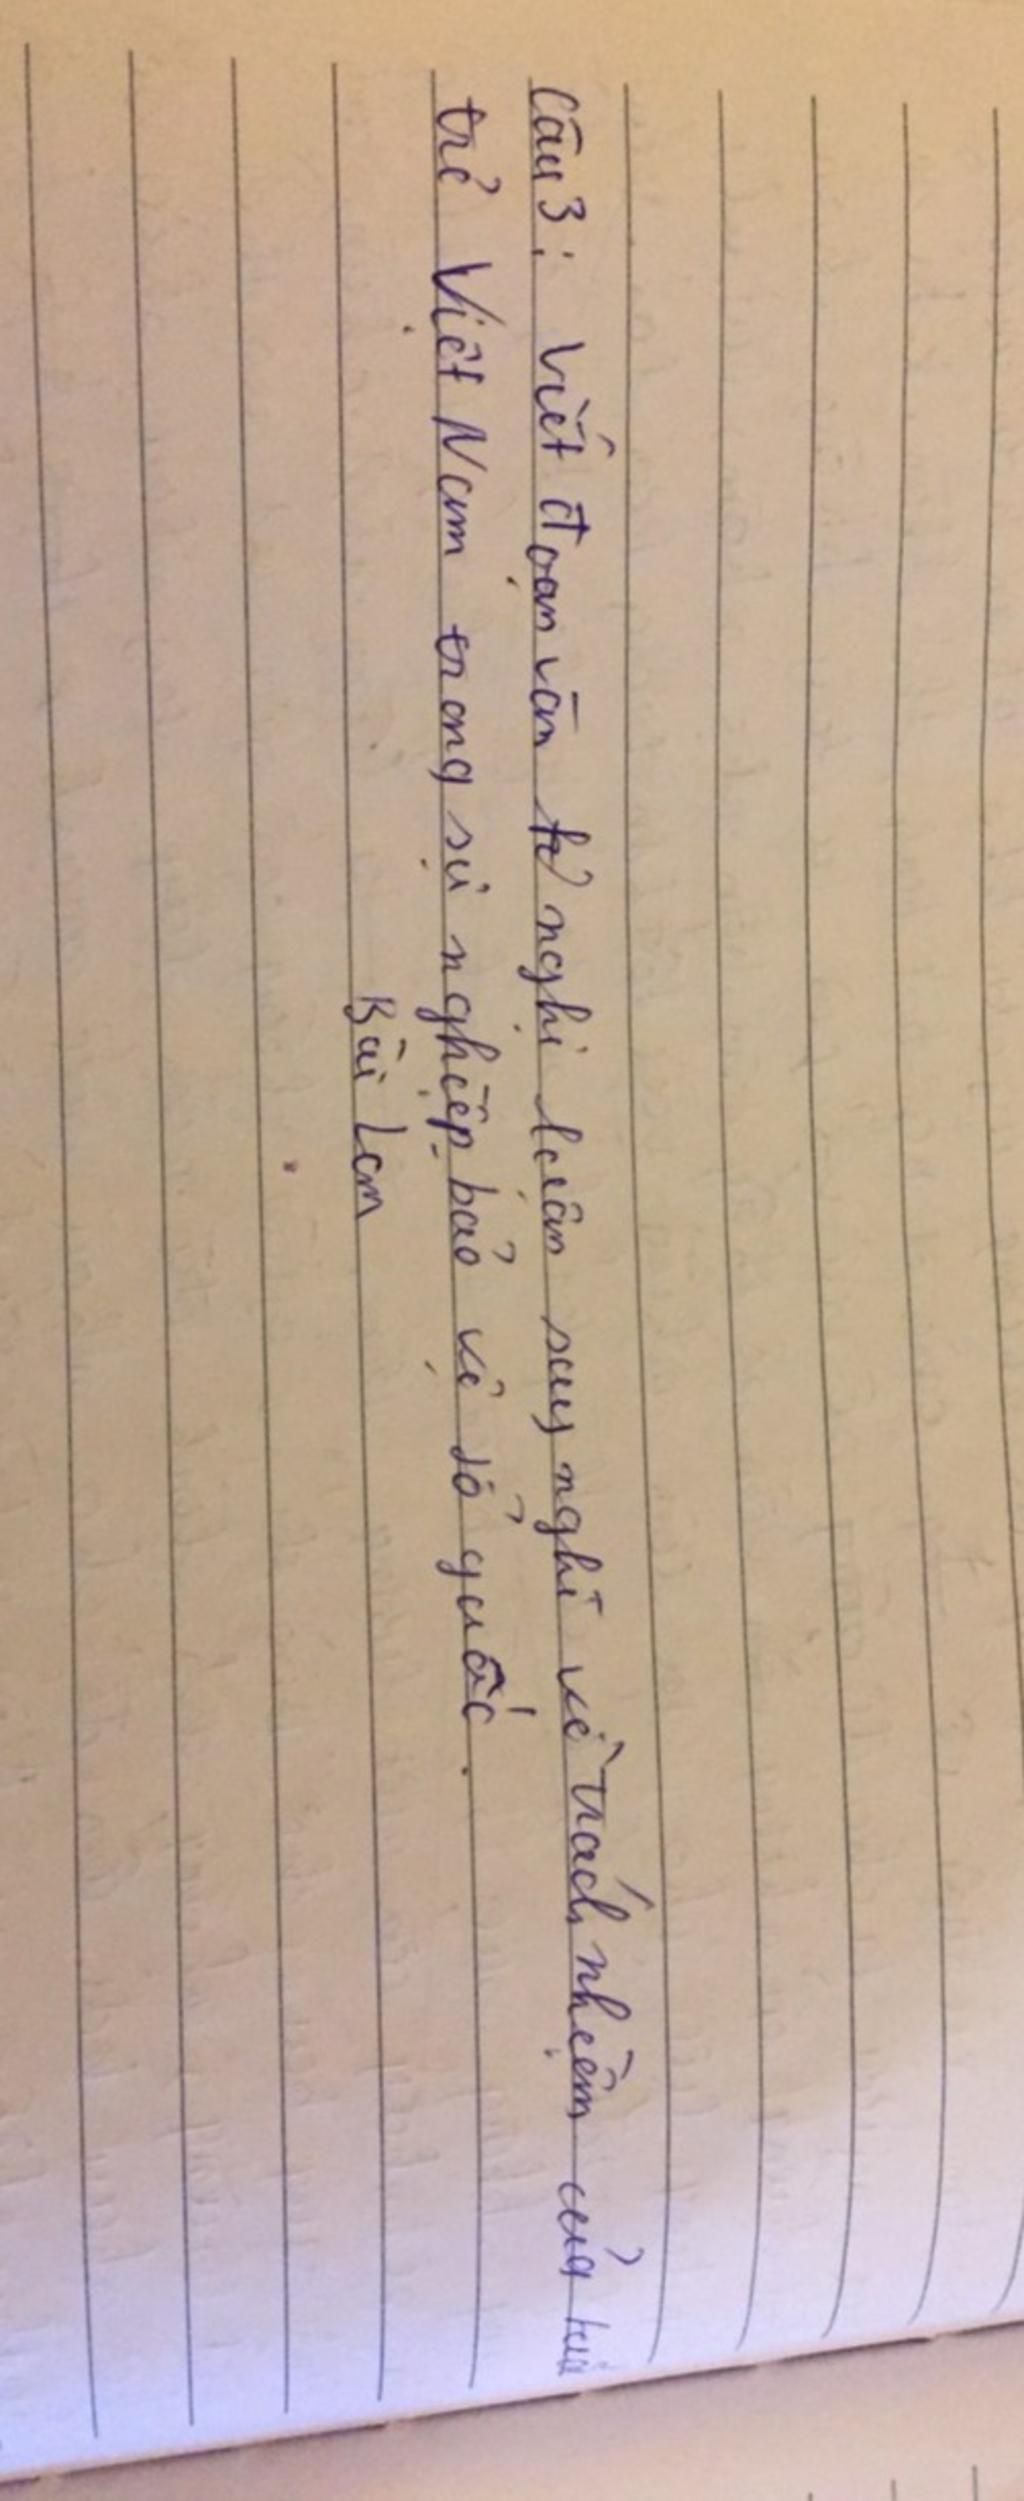 Câu 3: Viết đoạn văn nghị luận suy nghĩ về trách nhiệm của tuổi
trẻ Việt Nam trong sự nghiệp bảo vệ tổ quốc.
Bài Làm